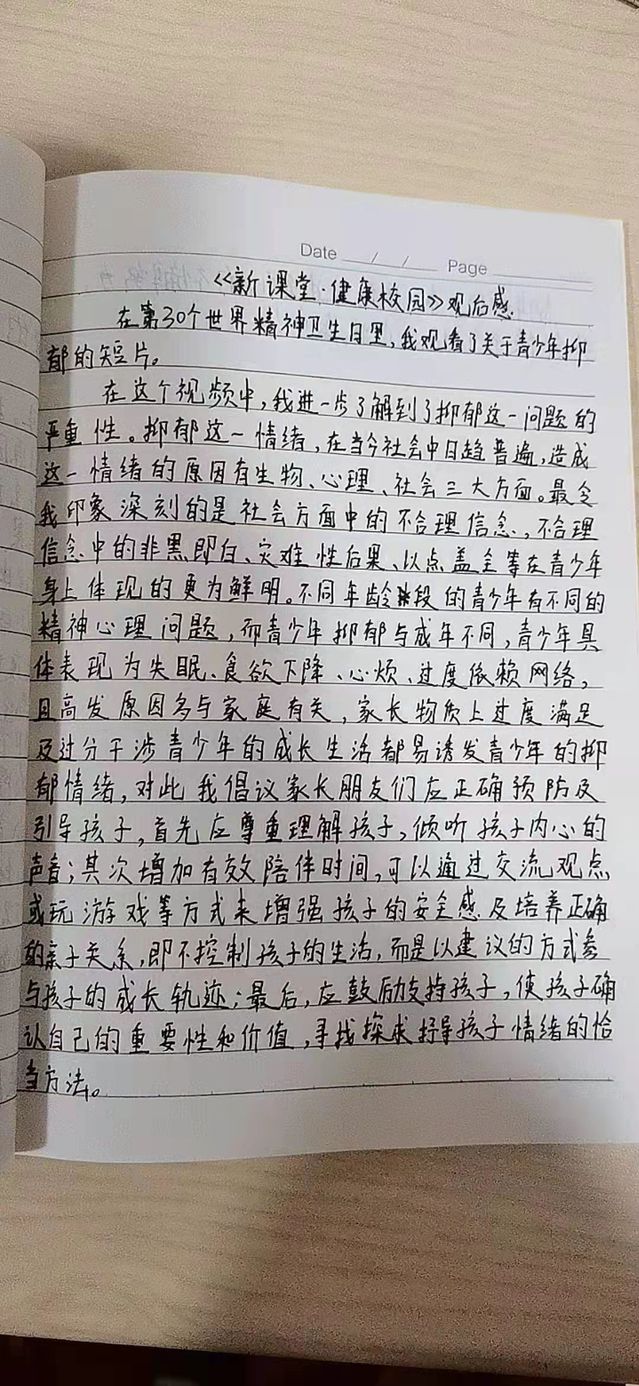 Date / / Page
《新课堂·健康校园》观后感.
在第30个世界精神卫生日里,我观看了关于青少年抑
郁的短片。
在这个视频中,我进一步了解到了抑郁这一问题的
严重性。抑郁这一情绪,在当今社会中日趋普遍,造成
这一情绪的原因有生物、心理、社会三大方面。最令
我印象深刻的是社会方面中的不合理信念,不合理
信念中的非黑即白、灾难性后果、以点盖全等在青少年
身上体现的更为鲜明。不同年龄段的青少年有不同的
精神心理问题,而青少年抑郁与成年不同,青少年具
体表现为失眠、食欲下降、心烦、过度依赖网络,
且高发原因多与家庭有关,家长物质上过度满足
及过分干涉青少年的成长生活都易诱发青少年的抑
郁情绪,对此我倡议家长朋友们应正确预防及
引导孩子,首先应尊重理解孩子,倾听孩子内心的
声音;其次增加有效陪伴时间,可以通过交流观点
或玩游戏等方式来增强孩子的安全感及培养正确
的亲子关系,即不控制孩子的生活,而是以建议的方式参
与孩子的成长轨迹;最后,应鼓励支持孩子,使孩子确
认自己的重要性和价值,寻找探求抒导孩子情绪的恰
当方法。